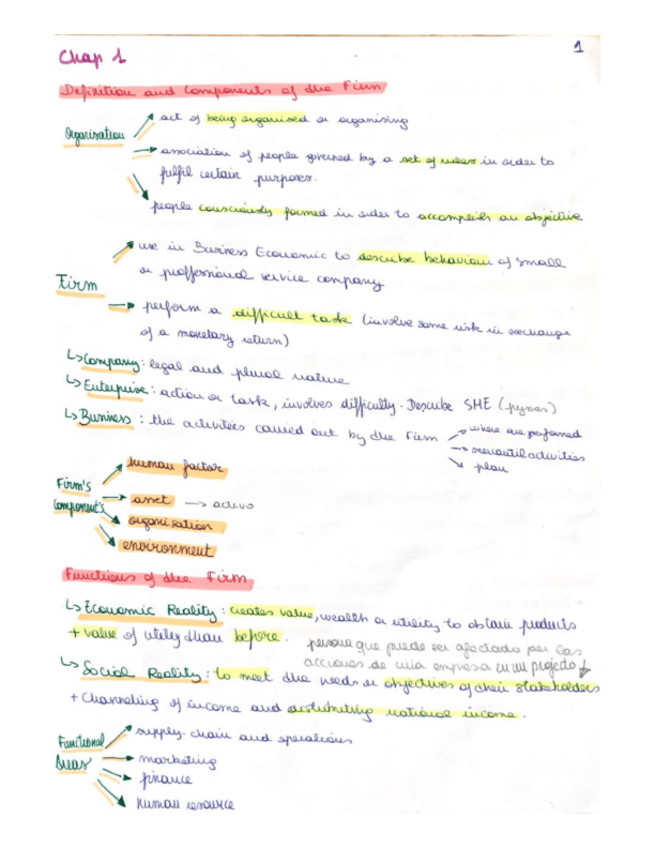 1
Chap 1
Definition and Components of the Firm
Organisation
act of being organised or organising
association of people governed by a set of rules in order to
fulfil certain purposes.
people consciously formed in order to accomplish an objective
Firm
use in Business Economic to describe behaviour of small
or proffessional service company
perform a difficult task (involve some risk in exchange
of a monetary return)
↳ Company: legal and plural nature
↳ Enterprise: action or task, involves difficulty. Describe SME (pymes)
↳ Business: the activities carried out by the firm
where are performed
mercantil activities
plan
Firm's
Component's
human factor
asset → activo
organisation
environment
Functions of the Firm
↳ Economic Reality: creates value, wealth or utility to obtain products
+ value of utility than before.
persona que puede ser afectado por las
acciones de una empresa en un projecto
↳ Social Reality: to meet the needs or objectives of their stakeholders
+ channeling of income and distributing national income.
Functional
Areas
supply-chain and operations
marketing
finance
human resource